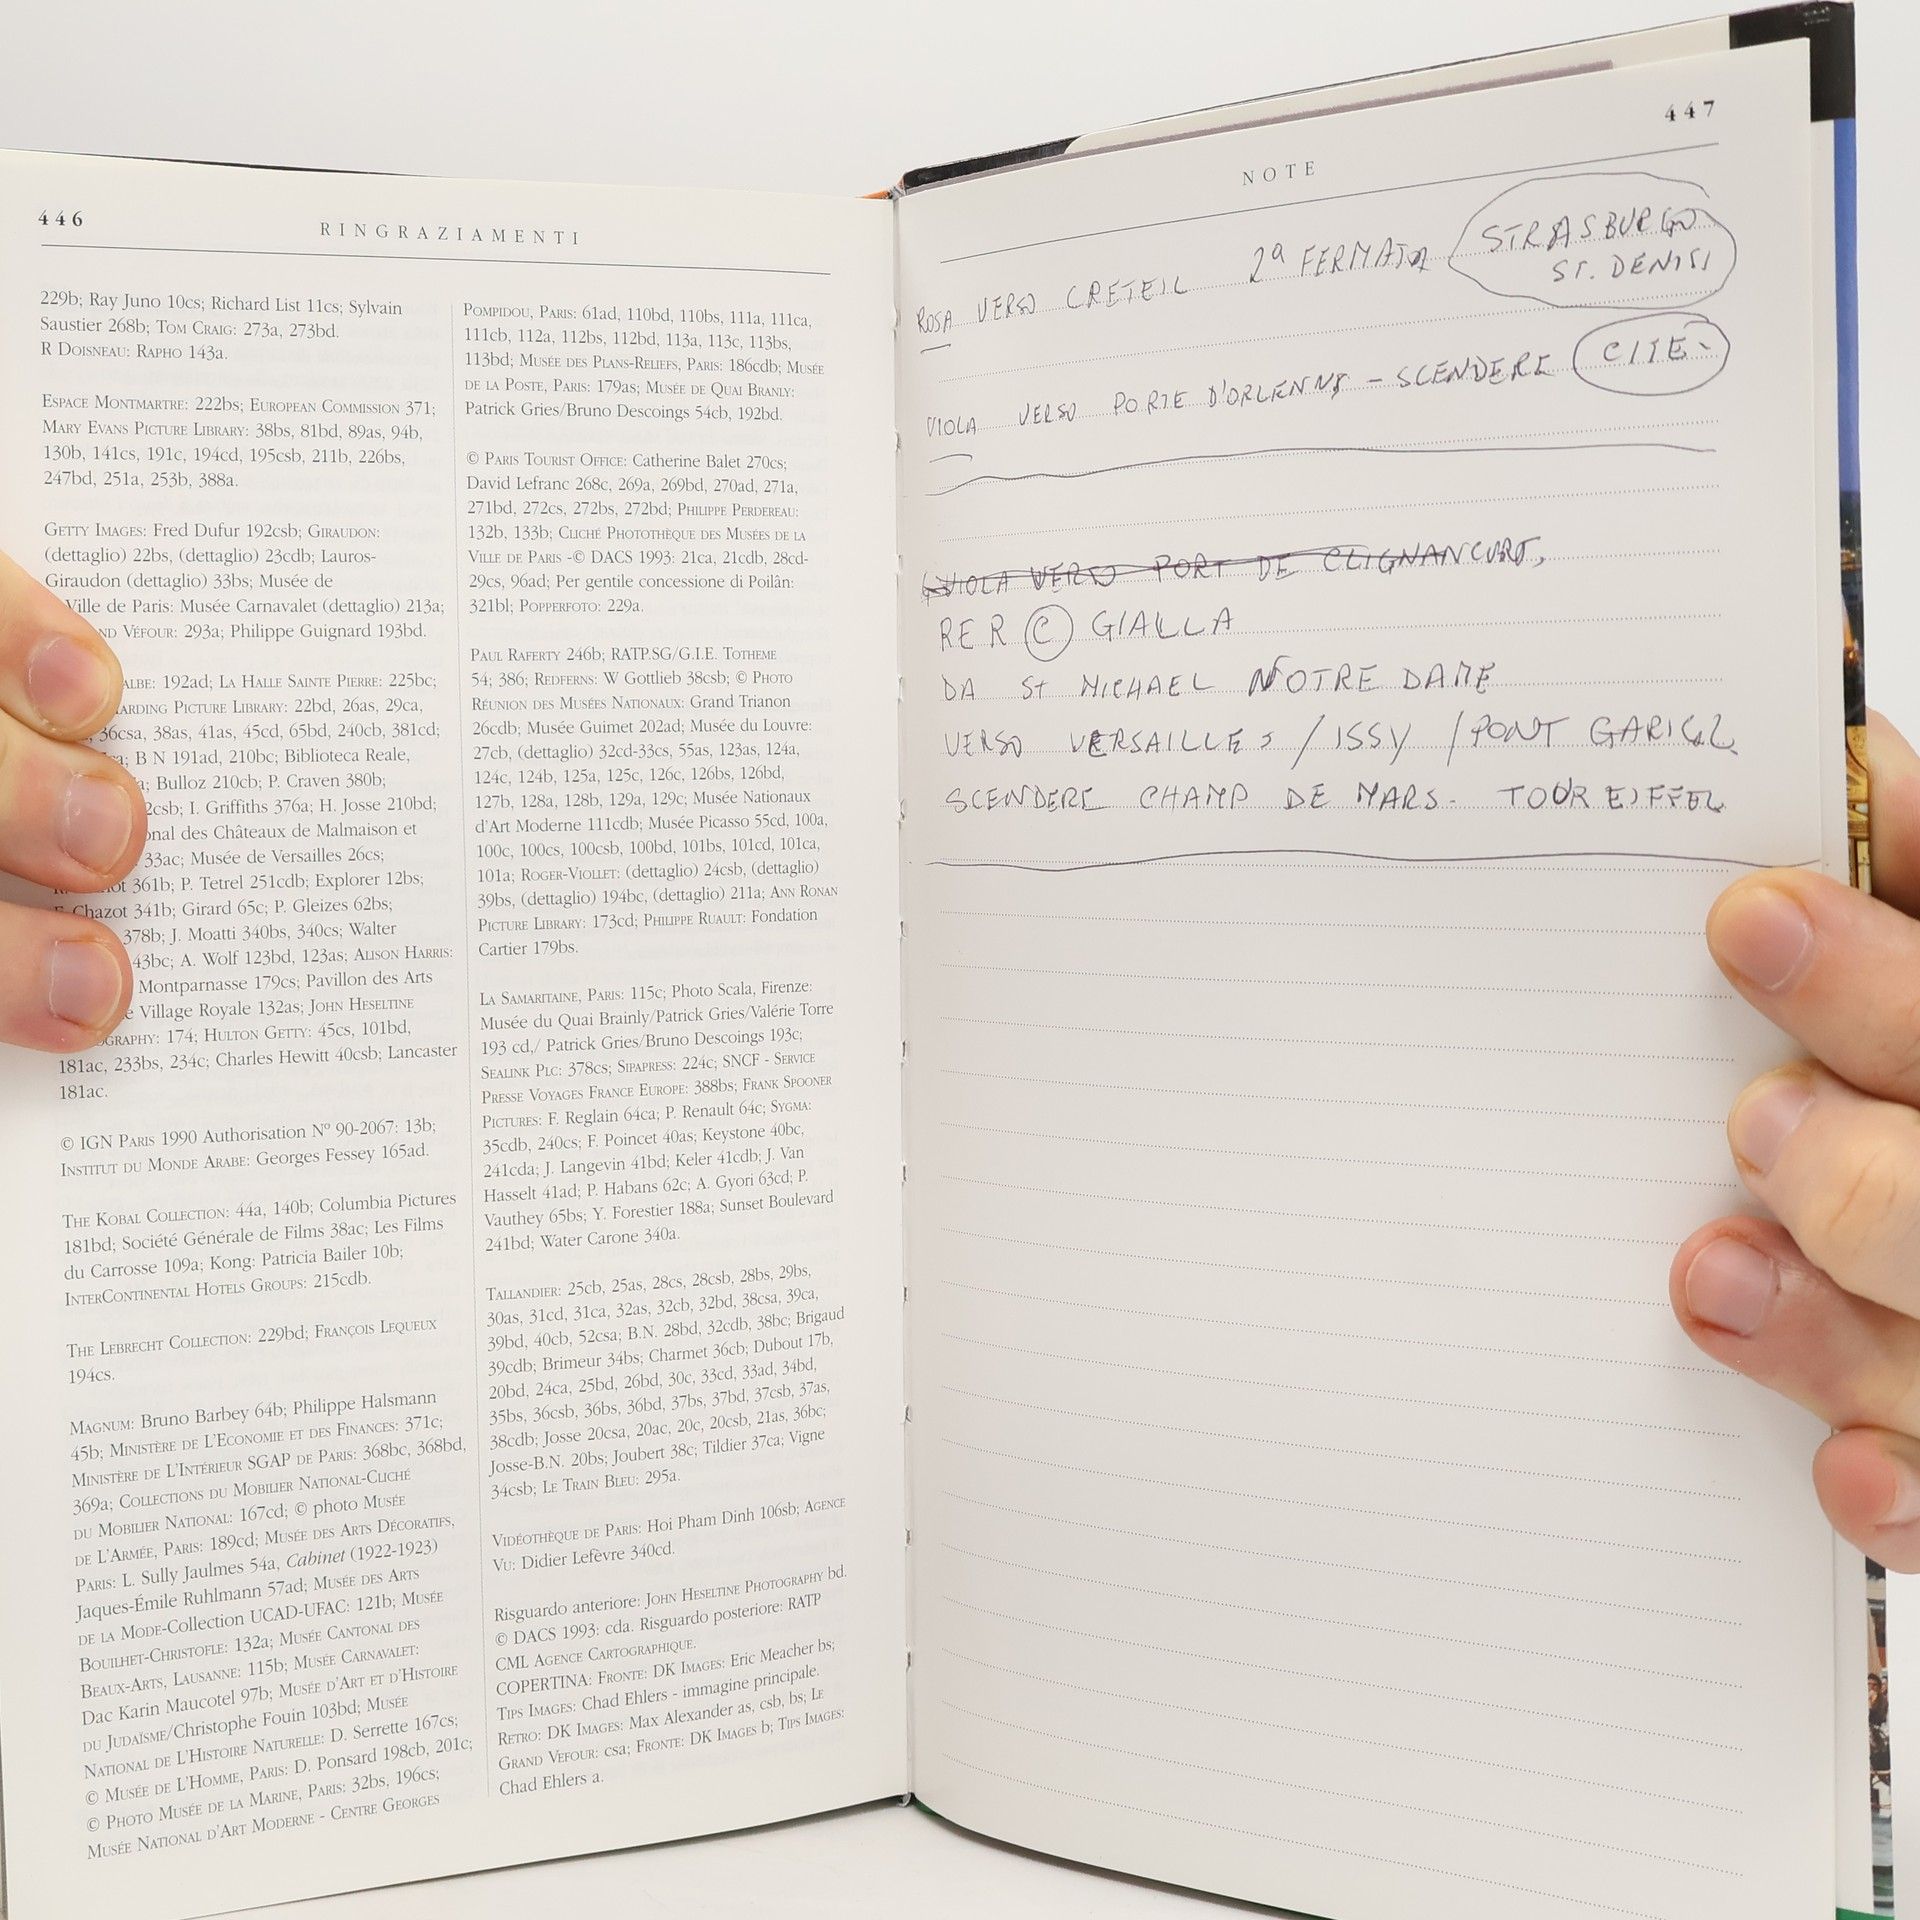 446
RINGRAZIAMENTI
229b; Ray Juno 10cs; Richard List 11cs; Sylvain
Saustier 268b; Tom Craig: 273a, 273bd.
R Doisneau: Rapho 143a.
Espace Montmartre: 222bs; European Commission 371;
Mary Evans Picture Library: 38bs, 81bd, 89as, 94b,
130b, 141cs, 191c, 194cd, 195csb, 211b, 226bs,
247bd, 251a, 253b, 388a.
Getty Images: Fred Dufur 192csb; Giraudon:
(dettaglio) 22bs, (dettaglio) 23cdb; Lauros-
Giraudon (dettaglio) 33bs; Musée de
Ville de Paris: Musée Carnavalet (dettaglio) 213a;
nd Véfour: 293a; Philippe Guignard 193bd.
albe: 192ad; La Halle Sainte Pierre: 225bc;
arding Picture Library: 22bd, 26as, 29ca,
36csa, 38as, 41as, 45cd, 65bd, 240cb, 381cd;
B N 191ad, 210bc; Biblioteca Reale,
Bulloz 210cb; P. Craven 380b;
2csb; I. Griffiths 376a; H. Josse 210bd;
onal des Châteaux de Malmaison et
33ac; Musée de Versailles 26cs;
ot 361b; P. Tetrel 251cdb; Explorer 12bs;
Chazot 341b; Girard 65c; P. Gleizes 62bs;
378b; J. Moatti 340bs, 340cs; Walter
43bc; A. Wolf 123bd, 123as; Alison Harris:
Montparnasse 179cs; Pavillon des Arts
e Village Royale 132as; John Heseltine
ography: 174; Hulton Getty: 45cs, 101bd,
181ac, 233bs, 234c; Charles Hewitt 40csb; Lancaster
181ac.
© IGN Paris 1990 Authorisation Nº 90-2067: 13b;
Institut du Monde Arabe: Georges Fessey 165ad.
The Kobal Collection: 44a, 140b; Columbia Pictures
181bd; Société Générale de Films 38ac; Les Films
du Carrosse 109a; Kong: Patricia Bailer 10b;
InterContinental Hotels Groups: 215cdb.
The Lebrecht Collection: 229bd; François Lequeux
194cs.
Magnum: Bruno Barbey 64b; Philippe Halsmann
45b; Ministère de L'Economie et des Finances: 371c;
Ministère de L'Intérieur SGAP de Paris: 368bc, 368bd,
369a; Collections du Mobilier National-Cliché
du Mobilier National: 167cd; © photo Musée
de L'Armée, Paris: 189cd; Musée des Arts Décoratifs,
Paris: L. Sully Jaulmes 54a, Cabinet (1922-1923)
Jaques-Émile Ruhlmann 57ad; Musée des Arts
de la Mode-Collection UCAD-UFAC: 121b; Musée
Bouilhet-Christofle: 132a; Musée Cantonal des
Beaux-Arts, Lausanne: 115b; Musée Carnavalet:
Dac Karin Maucotel 97b; Musée d'Art et d'Histoire
du Judaïsme/Christophe Fouin 103bd; Musée
National de L'Histoire Naturelle: D. Serrette 167cs;
© Musée de L'Homme, Paris: D. Ponsard 198cb, 201c;
© Photo Musée de la Marine, Paris: 32bs, 196cs;
Musée National d'Art Moderne - Centre Georges
Pompidou, Paris: 61ad, 110bd, 110bs, 111a, 111ca,
111cb, 112a, 112bs, 112bd, 113a, 113c, 113bs,
113bd; Musée des Plans-Reliefs, Paris: 186cdb; Musée
de la Poste, Paris: 179as; Musée de Quai Branly:
Patrick Gries/Bruno Descoings 54cb, 192bd.
© Paris Tourist Office: Catherine Balet 270cs;
David Lefranc 268c, 269a, 269bd, 270ad, 271a,
271bd, 272cs, 272bs, 272bd; Philippe Perdereau:
132b, 133b; Cliché Photothèque des Musées de la
Ville de Paris -© DACS 1993: 21ca, 21cdb, 28cd-
29cs, 96ad; Per gentile concessione di Poilân:
321bl; Popperfoto: 229a.
Paul Raferty 246b; RATP.SG/G.I.E. Totheme
54; 386; Redferns: W Gottlieb 38csb; © Photo
Réunion des Musées Nationaux: Grand Trianon
26cdb; Musée Guimet 202ad; Musée du Louvre:
27cb, (dettaglio) 32cd-33cs, 55as, 123as, 124a,
124c, 124b, 125a, 125c, 126c, 126bs, 126bd,
127b, 128a, 128b, 129a, 129c; Musée Nationaux
d'Art Moderne 111cdb; Musée Picasso 55cd, 100a,
100c, 100cs, 100csb, 100bd, 101bs, 101cd, 101ca,
101a; Roger-Viollet: (dettaglio) 24csb, (dettaglio)
39bs, (dettaglio) 194bc, (dettaglio) 211a; Ann Ronan
Picture Library: 173cd; Philippe Ruault: Fondation
Cartier 179bs.
La Samaritaine, Paris: 115c; Photo Scala, Firenze:
Musée du Quai Brainly/Patrick Gries/Valérie Torre
193 cd,/ Patrick Gries/Bruno Descoings 193c;
Sealink Plc: 378cs; Sipapress: 224c; SNCF - Service
Presse Voyages France Europe: 388bs; Frank Spooner
Pictures: F. Reglain 64ca; P. Renault 64c; Sygma:
35cdb, 240cs; F. Poincet 40as; Keystone 40bc,
241cda; J. Langevin 41bd; Keler 41cdb; J. Van
Hasselt 41ad; P. Habans 62c; A. Gyori 63cd; P.
Vauthey 65bs; Y. Forestier 188a; Sunset Boulevard
241bd; Water Carone 340a.
Tallandier: 25cb, 25as, 28cs, 28csb, 28bs, 29bs,
30as, 31cd, 31ca, 32as, 32cb, 32bd, 38csa, 39ca,
39bd, 40cb, 52csa; B.N. 28bd, 32cdb, 38bc; Brigaud
39cdb; Brimeur 34bs; Charmet 36cb; Dubout 17b,
20bd, 24ca, 25bd, 26bd, 30c, 33cd, 33ad, 34bd,
35bs, 36csb, 36bs, 36bd, 37bs, 37bd, 37csb, 37as,
38cdb; Josse 20csa, 20ac, 20c, 20csb, 21as, 36bc;
Josse-B.N. 20bs; Joubert 38c; Tildier 37ca; Vigne
34csb; Le Train Bleu: 295a.
Vidéothèque de Paris: Hoi Pham Dinh 106sb; Agence
Vu: Didier Lefèvre 340cd.
Risguardo anteriore: John Heseltine Photography bd.
© DACS 1993: cda. Risguardo posteriore: RATP
CML Agence Cartographique.
COPERTINA: Fronte: DK Images: Eric Meacher bs;
Tips Images: Chad Ehlers - immagine principale.
Retro: DK Images: Max Alexander as, csb, bs; Le
Grand Véfour: csa; Fronte: DK Images b; Tips Images:
Chad Ehlers a.
447
NOTE
ROSA VERSO CRETEIL 2ª FERMATA STRASBURGO
ST. DENISI
VIOLA VERSO PORTE D'ORLENNS - SCENDERE CITÈ
VIOLA VERSO PORT DE CLIGNANCURT,
RER C GIALLA
DA ST MICHAEL NOTRE DAME
VERSO VERSAILLES / ISSY / PONT
SCENDERE CHAMP DE MARS - TOUR EIFFEL